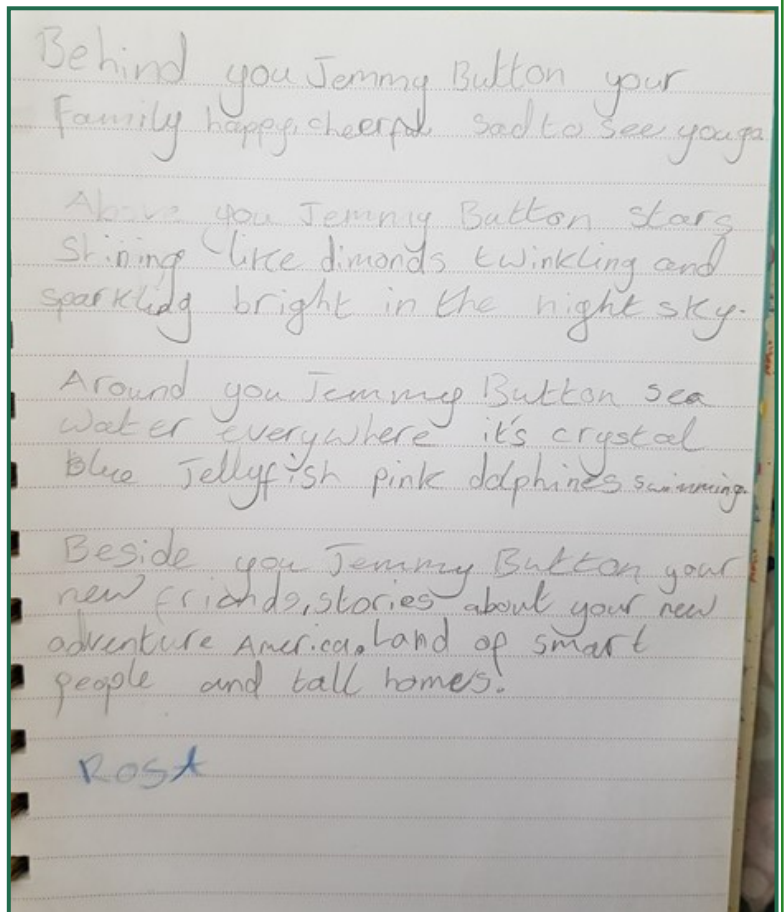 Behind you Jemmy Button your
Family happy, cheerful sad to see you go
Above you Jemmy Button stars
Shining like dimonds twinkling and
sparkling bright in the night sky.
Around you Jemmy Button sea
water everywhere it's crystal
blue Jellyfish pink dolphines swimming.
Beside you Jemmy Button your
new friends, stories about your new
adventure America. Land of smart
people and tall homes.